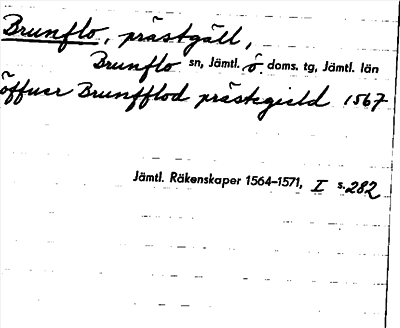 Brunflo, prästgäll,
Brunflo sn, Jämtl. Ö. doms. tg, Jämtl. län
öffuer Brunfflod prästegield 1567
Jämtl. Räkenskaper 1564–1571, I s. 282